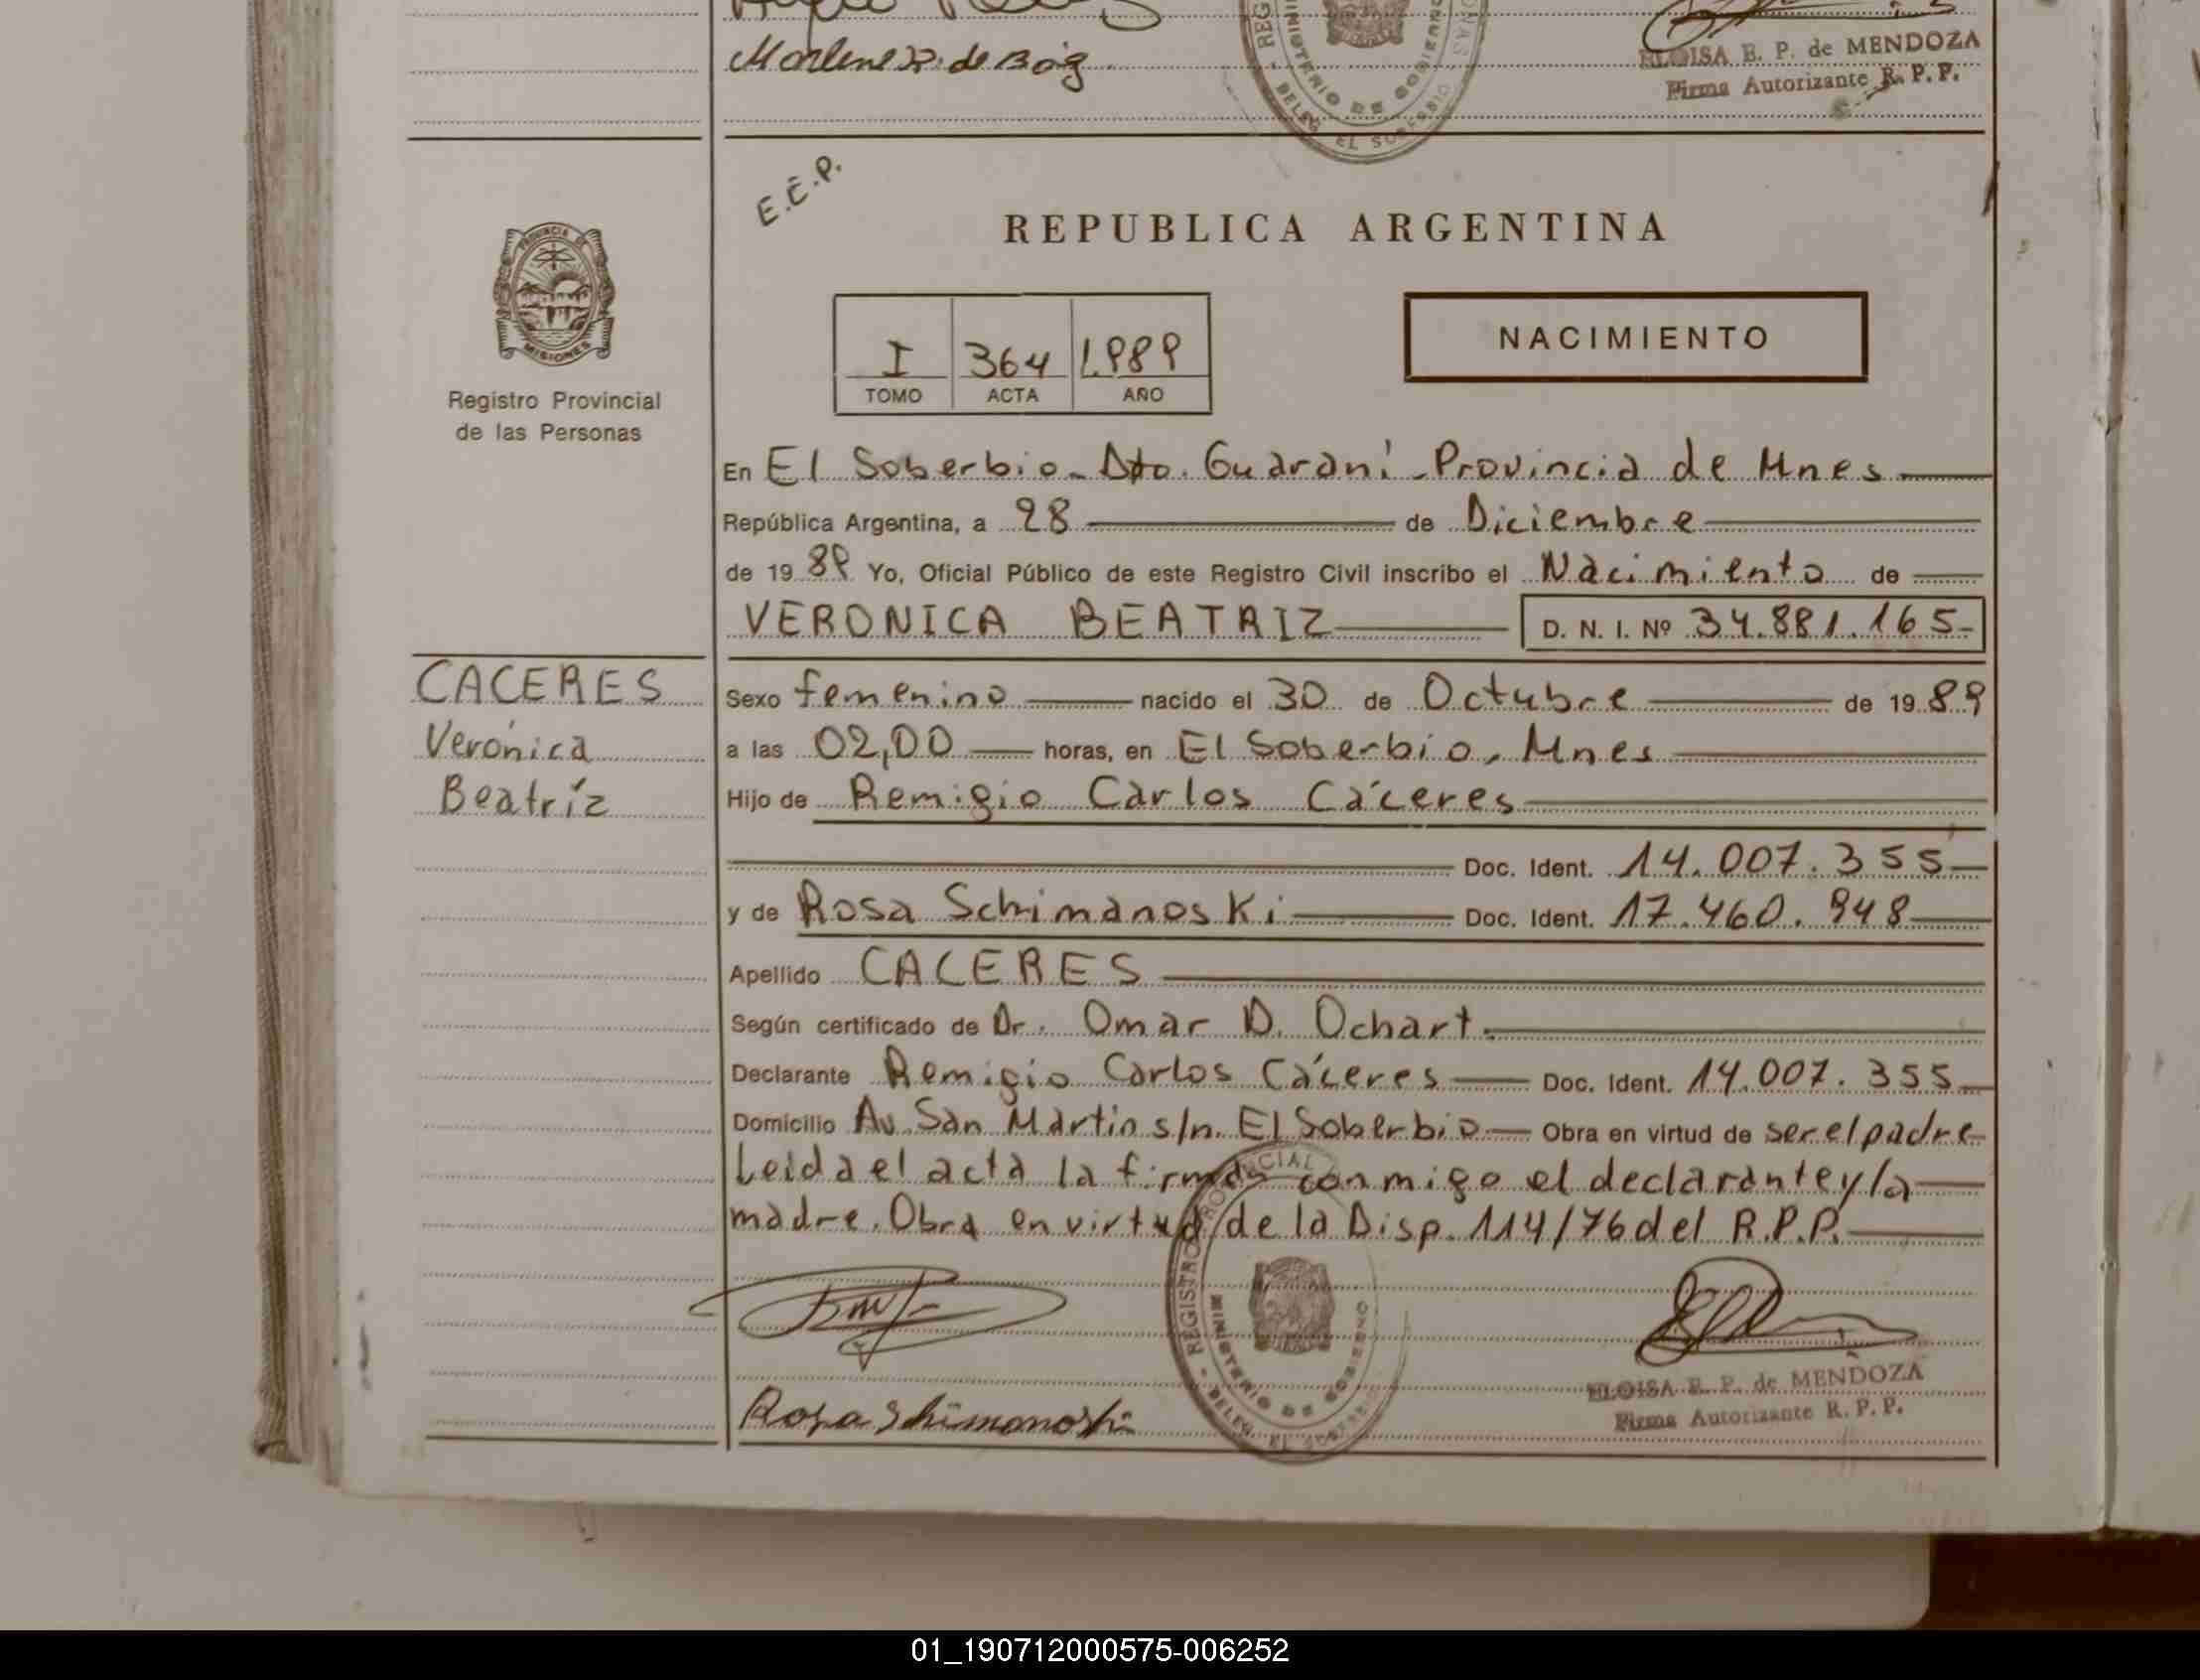 Marlene R. de
ELOISA E. P. de MENDOZA
Firma Autorizante R. P. P.
MINISTERIO DE GOBIERNO
DELEG. EL SOBERBIO
E.C.P.
REPUBLICA ARGENTINA
PROVINCIA DE
MISIONES
Registro Provincial
de las Personas
I 364 1.989
TOMO ACTA AÑO
NACIMIENTO
En El Soberbio - Dto. Guaraní - Provincia de Mnes
República Argentina, a 28 de Diciembre
de 19 89 Yo, Oficial Público de este Registro Civil inscribo el Nacimiento de
VERONICA BEATRIZ D. N. I. Nº 34.881.165-
CACERES
Verónica
Beatríz
Sexo femenino nacido el 30 de Octubre de 19 89
a las 02,00 horas, en El Soberbio, Mnes
Hijo de Remigio Carlos Cáceres
Doc. Ident. 14.007.355
y de Rosa Schimanoski Doc. Ident. 17.460.948
Apellido CACERES
Según certificado de Dr. Omar D. Ochart.
Declarante Remigio Carlos Cáceres Doc. Ident. 14.007.355
Domicilio Av. San Martin s/n. El Soberbio Obra en virtud de ser el padre
Leida el acta la firmda conmigo el declarante y la
madre. Obra en virtud de la Disp. 114/76 del R.P.P.
REGISTRO PROVINCIAL
MINISTERIO DE GOBIERNO
DELEG. EL SOBERBIO
ELOISA E. P. de MENDOZA
Firma Autorizante R. P. P.
Rosa Schimanoski
01_190712000575-006252